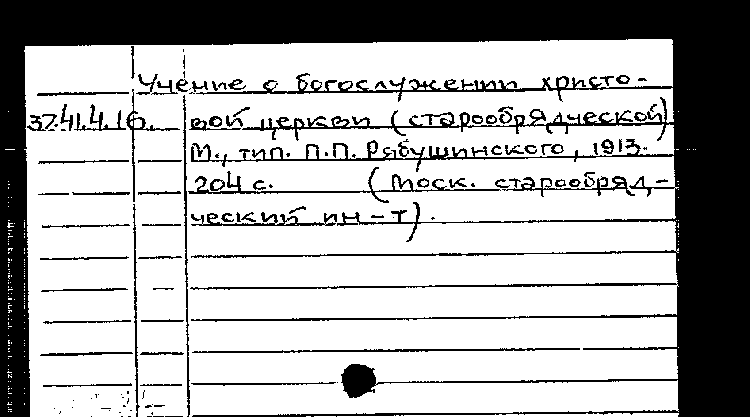 Учение о богослужении христо-
37.41.4.16. вой церкви (старообрядческой)
М., тип. П.П. Рябушинского, 1913.
204 с. (Моск. старообряд-
ческий ин-т).